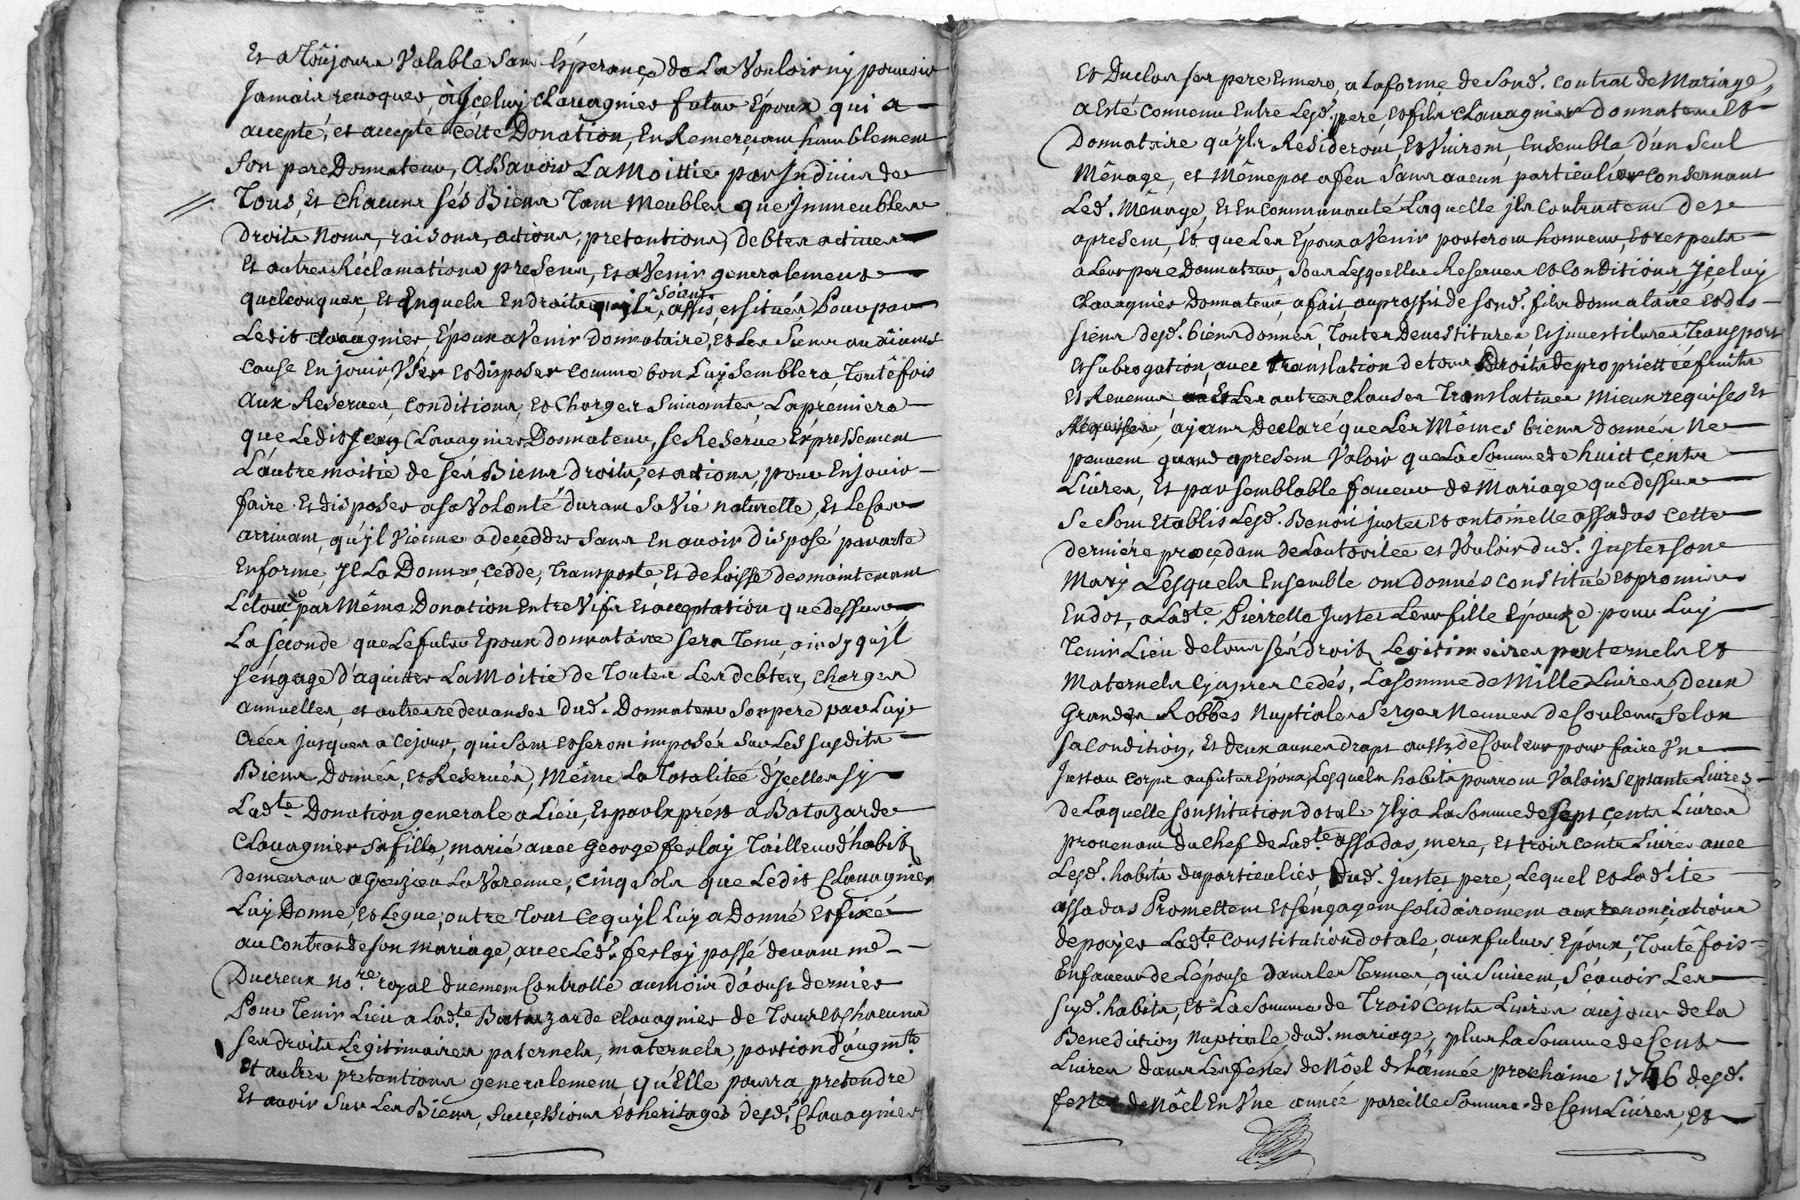 Et a Toûjours Valable sans Espérance de La Vouloir ny pouvoir
Jamais revoquer, à Jceluy Clavagnier futur Epoux, qui a
accepté, et accepte cette Donation, En Remerciant humblement
son pere Donnateur, Assavoir La Moitiè par Indivis de
Tous, Et Chacuns sés Biens Tant Meubles que Jmmeubles
droits Noms, raisons, actions, pretentions, debtes actives
Et autres Réclamations presens, et aVenir generalement
quelconques, Et Enquels Endroits qu'ils soient assis et situés Pour par
Ledit Clavagnier Époux aVenir donnataire, et Les Siens ou aiants
cause En jouir, User et disposer comme bon Luy semblera, Toutêfois
Aux Reserves, conditions et Charges suivantes La premiere
que Ledit Jean Clavagnier Donnateur, se Reserve Expressement
L'autre moitié de sés Biens droits, et actions, pour En jouir
faire Et disposer a sa Volonté durant sa Vie naturelle, Et Le Cas
arrivant, qu'jl Vienne a deçedder sans En avoir disposé par acte
En forme, Jl La Donne, Cedde, Transporte, Et delaisse des maintenant
Le tout par Même Donation Entre Vifs Et acceptation que dessus
La séconde que Le futur Epoux donnataire sera Tenu, ainsy qu'jl
s'éngage d'aquitter La Moitié de Toutes Les debtes, charges
annuelles, et autres redevances dud. Donnateur son pere par Luy
créés jusques a ce jour, qui sont et seront imposés sur Les susdits
Biens Donnés, et Reservés, Même La Totalitée d'Jcelles sy
Ladte. Donation generale a Lieu, Et par Exprés a Batazarde
Clavagnier sa fille, marié avec George ferlay Tailleur d'habits
demeurant a Grezieu La Varenne, Cinq sols que Ledit Clavagnier
Luy Donne, et Legue, outre Tout Ce qu'jl Luy a Donné et fixé
au Contrat de son mariage, avec Led. ferlay passé devant mé
Ducreux Nore. royal duement Controllé au moir d'aoust dernier
Pour Tenir Lieu a Ladte. Batazarde Clavagnier de Tous et chacuns
ses droits Legitimaires paternels, maternels, portion d'augmt.
Et autres pretentions generalement qu'Elle pourra pretendre
Et avoir sur Les Biens, successions et heritages desd. Clavagnier
Et Duclos ses pere Et mere, a La forme de sond. contrat de Mariage,
a Esté Convenu Entre Lesd. pere, et fils Clavagnier donnateur Et
Donnataire qu'jls Résideront, Et Vivront, Ensemble d'un seul
Mênage, et Mêmepot a feu sans aucun particulier Consernant
Led. Mênage, Et En Communauté Laquelle jls Contractent des
apresent, Et que Les Époux aVenir porteront honneur, et respects
a Leur pere Donnateur, sous Lesquelles Reserves et Conditions Jceluy
Clavagnier Donnateur, a fait, au proffit de sond. fils donnataire et des
siens desd. biens donnés, Toutes Devestitures, et Jnvestitures Transport
et subrogation, avec translation de tous droits de propriettéé fruits
Et Revenus Et Les autres clauses Translatives Mieux requises Et
ayans Declaré que Les Mêmes biens donnés Ne
peuvent quand apresent Valoir que La Somme de huict Cents
Livres, Et par semblable faveur de Mariage que dessus
Se sont Etablis Lesd. Benoit Justet et antoinette assadas Cette
derniére proçedant de L'autorilée et Vouloir dud. Justet son
Mary, Lesquels Ensemble ont donnés Constitué et promis
En dot, a Ladte. Pierrette Justet Leur fille Epouze pour Luy
Tenir Lieu de tous sés droits Legitimaires paternels Et
Maternels Cy apres Cedés, La somme de Mille Livres, deux
Grandes Robbes Nuptiales serges Neuves de Couleurs Selon
sa Condition, Et deux aunes drapt aussy de Couleur pour faire V'ne
Justau corps au futur Epoux, Lesquels habits pourront Valoir Septante Livres
de Laquelle Constitution dotale Jl y a La Somme de sept Cents Livres
provenant du Chef de Ladte. assadas, mere, Et trois cents Livres avec
Lesd. habits du particulier, dud. Justet pere, Lequel et Ladite
assadas Promettent Et s'éngagent solidairement aux renonciations
de payer Ladte. Constitution dotale, aux futurs Epoux, Toutêfois
En faveur de L'épouse Dans les Termes, qui suivent, Sçavoir Les
susd. habits, Et La Somme de Trois Cents Livres au jour de la
Benediction Nuptiale dud. mariage, plus La Somme de Cent
Livres dans Les festes de Nôel de L'année prochaine 1746 desd.
festes de Nôel En V'ne année pareille Somme de Cent Livres, et